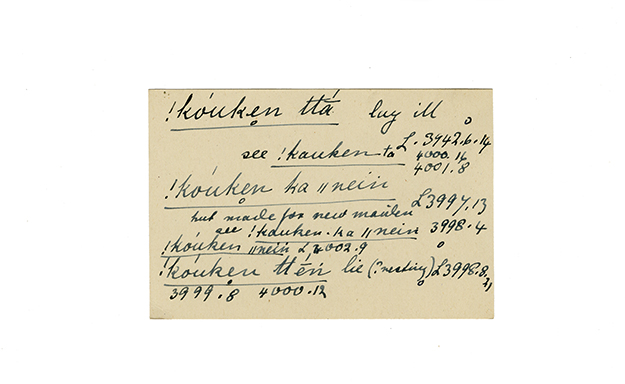 !kóuken ttá lay ill
see !kauken ta L. 3942.6.14
4000.16
4001.8
!kóuken ka ǁnein L3997.13
hut made for new maiden
see !kauken.ka ǁnein 3998.4
!kóuken ǁnein L,4002.9
!kóuken ttēń lie (? resting) L3998.8,
3999.8 4000.12